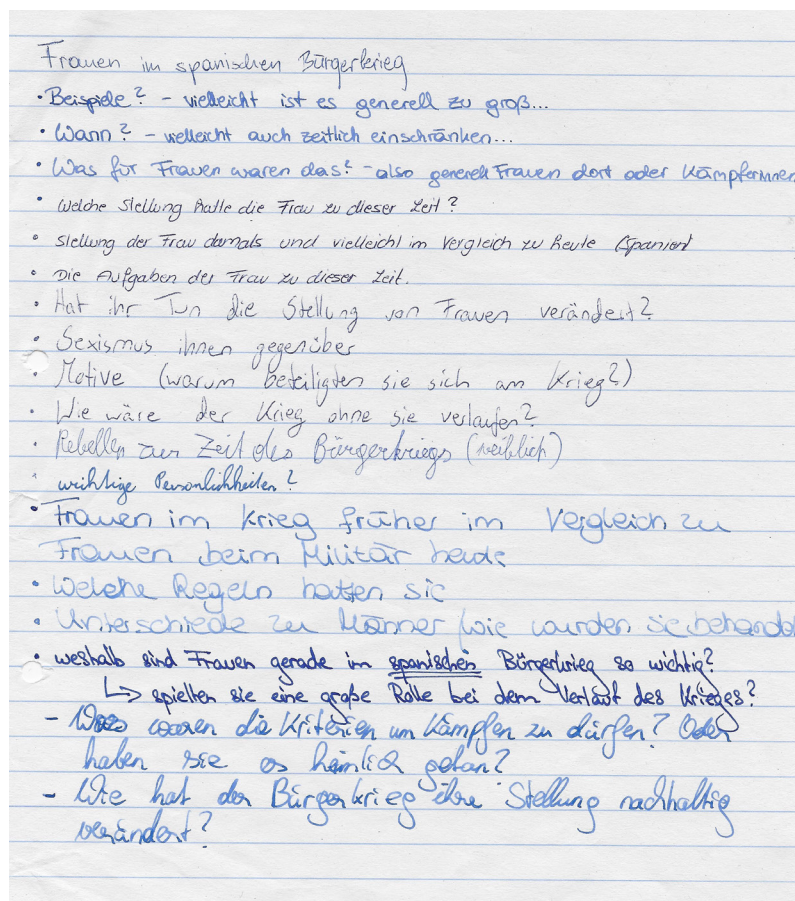 Frauen im spanischen Bürgerkrieg
• Beispiele? - vielleicht ist es generell zu groß...
• Wann? - vielleicht auch zeitlich einschränken...
• Was für Frauen waren das? - also generell Frauen dort oder Kämpferinnen
• Welche Stellung hatte die Frau zu dieser Zeit?
• Stellung der Frau damals und vielleicht im Vergleich zu heute (Spanien)
• Die Aufgaben der Frau zu dieser Zeit.
• Hat ihr Tun die Stellung von Frauen verändert?
• Sexismus ihnen gegenüber
• Motive (warum beteiligten sie sich am Krieg?)
• Wie wäre der Krieg ohne sie verlaufen?
• Rebellen zur Zeit des Bürgerkriegs (weiblich)
• wichtige Persönlichkeiten?
• Frauen im Krieg früher im Vergleich zu
Frauen beim Militär heute
• Welche Regeln hatten sie
• Unterschiede zu Männer (wie wurden sie behandel
• weshalb sind Frauen gerade im spanischen Bürgerkrieg so wichtig?
↳ spielten sie eine große Rolle bei dem Verlauf des Krieges?
- Was waren die Kriterien um Kämpfen zu dürfen? Oder
haben sie es heimlich getan?
- Wie hat der Bürgerkrieg ihre Stellung nachhaltig
verändert?